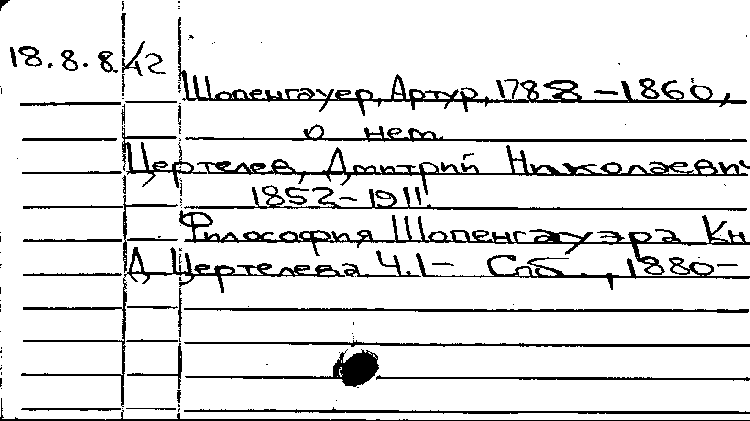 18.8.8.42
Шопенгауер, Артур, 1788-1860,
о нем.
Цертелев, Дмитрий Николаевич
1852-1911.
Философия Шопенгауэра Кн
Д. Цертелева. Ч.1- Спб., 1880-